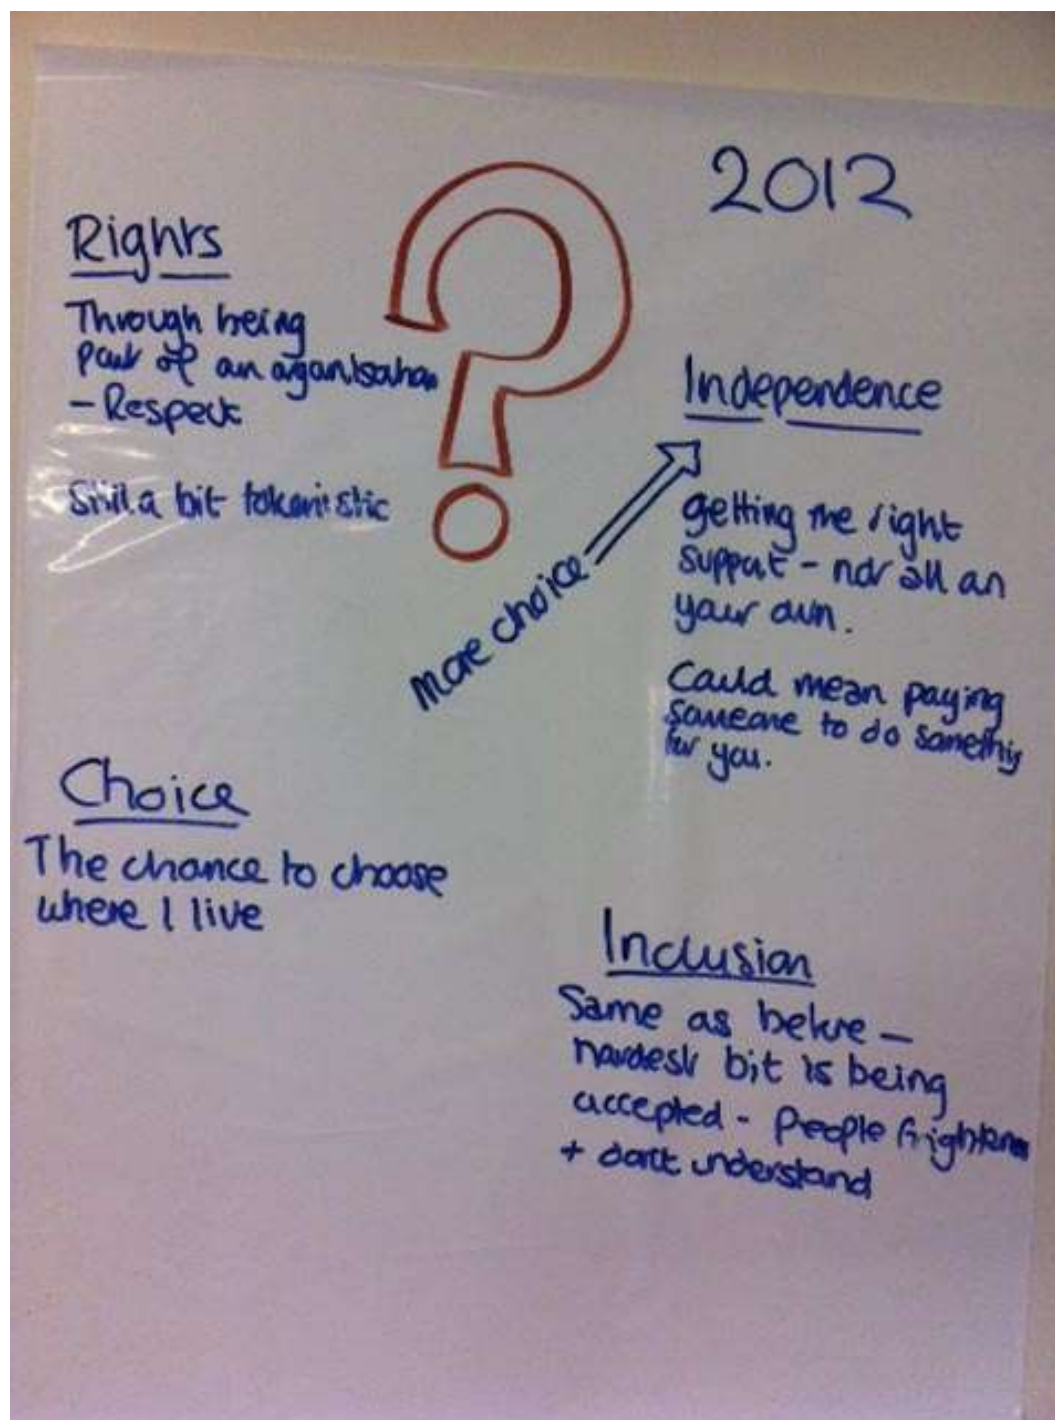 2012
Rights
Through being
part of an organisation
- Respect
Still a bit tokenistic
More choice
Independence
getting the right
support - not all on
your own.
Could mean paying
someone to do something
for you.
Choice
The chance to choose
where I live
Inclusion
Same as before -
hardest bit is being
accepted - People frightened
+ don't understand